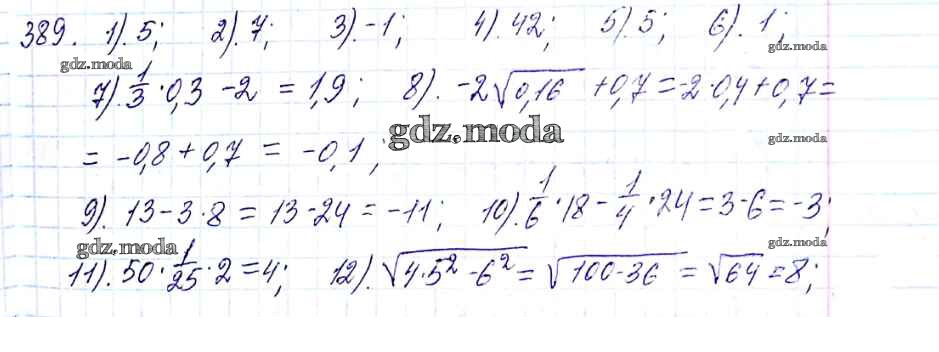 389. 1). 5; 2). 7; 3). -1; 4). 42; 5). 5; 6). 1;
gdz.moda gdz.moda
7). 1/3 · 0,3 - 2 = 1,9; 8). -2√0,16 + 0,7 = -2·0,4 + 0,7 =
gdz.moda gdz.moda
= -0,8 + 0,7 = -0,1;
9). 13 - 3·8 = 13 - 24 = -11; 10). 1/6 · 18 - 1/4 · 24 = 3 - 6 = -3;
gdz.moda gdz.moda
11). 50 · 1/25 · 2 = 4; 12). √4·5² - 6² = √100 - 36 = √64 = 8;